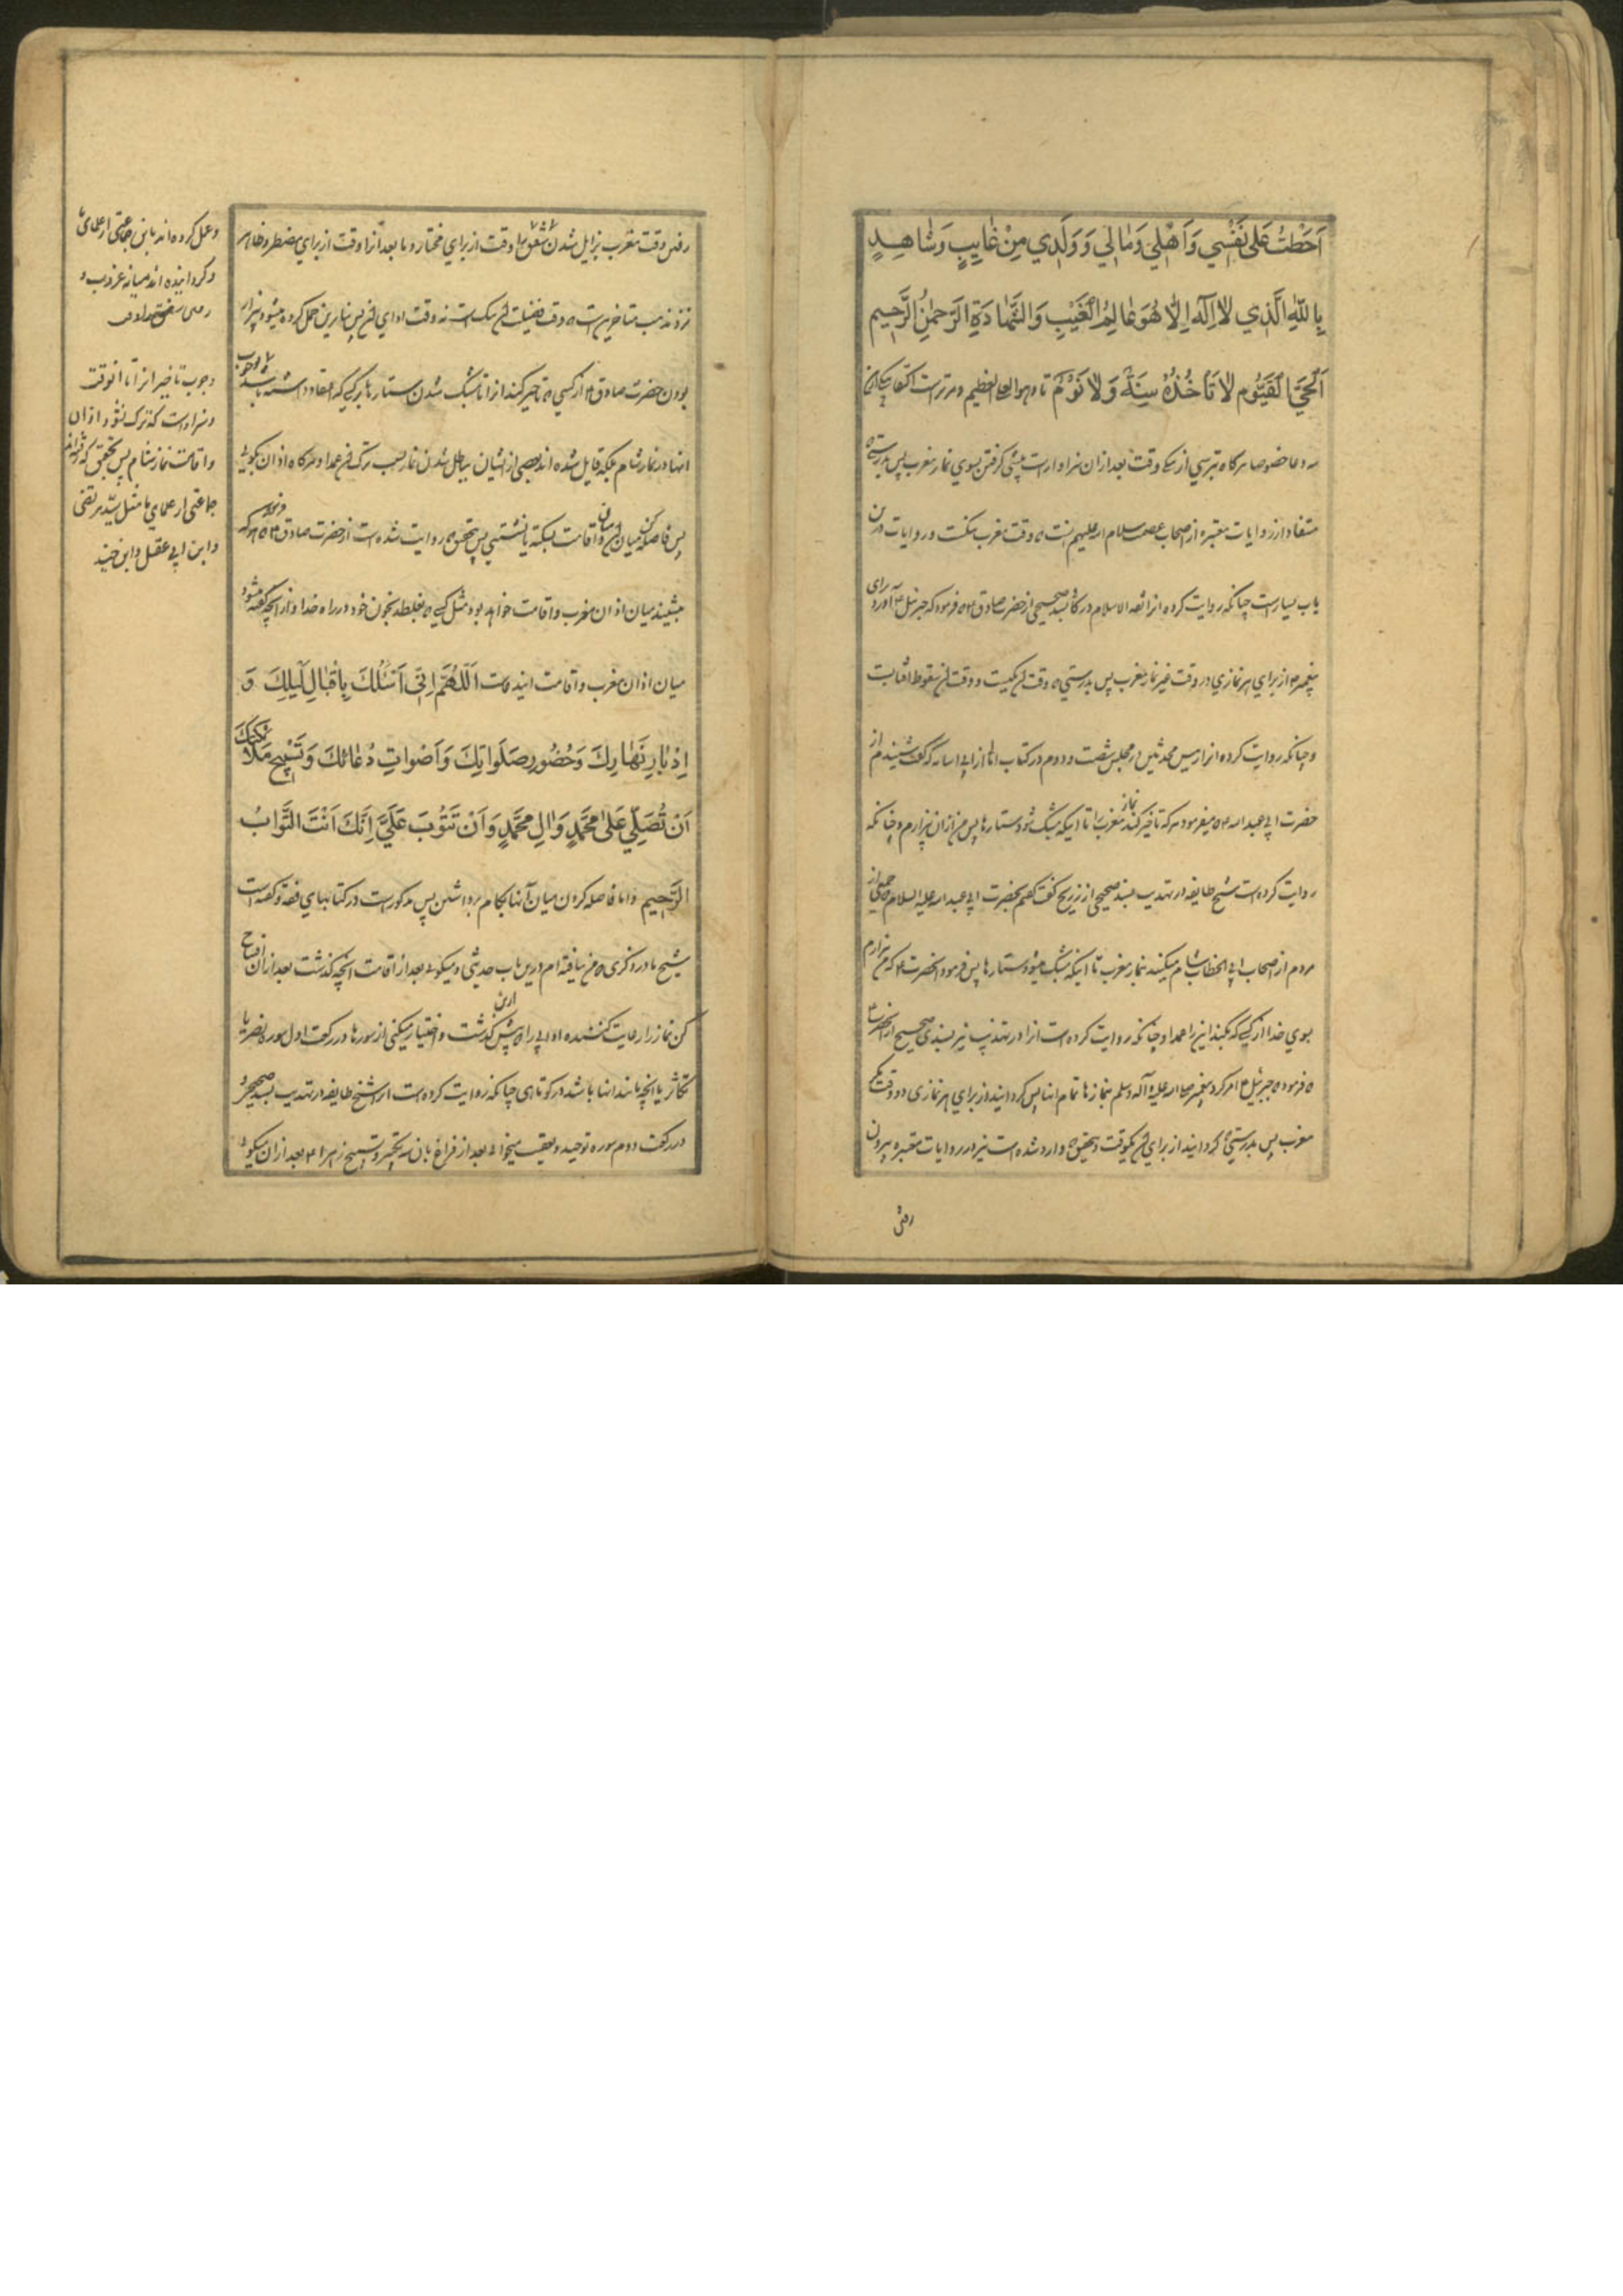 اَحَطْتُ عَلىٰ نَفْسِي وَاَهْلِي وَمٰالِي وَوَلَدِي مِنْ غٰايِبٍ وَشٰاهِدٍ
بِاللّٰهِ الَّذِي لاٰ اِلٰهَ اِلّٰا هُوَ عٰالِمُ الْغَيْبِ وَالشَّهٰادَةِ الرَّحْمٰنُ الرَّحِيم
اَلْحَيُّ الْقَيُّوم لاٰ تَأخُذُهُ سِنَةٌ وَلاٰ نَوْمٌ تا وهو العلي العظيم
سه دعا خصوصا هرگاه بترسي از وقت بعد ازان سزاوار است پيشي گرفتن بسوي نماز مغرب پس بدرستيكه
مستفاد از روايات معتبره از اصحاب عصمت سلام الله عليهم انست كه وقت مغرب يكست و روايات درين
باب بسيار است چنانكه روايت كرده انرا ثقة الاسلام در كافي بسند صحيحي از حضرت صادق ع كه فرمود كه جبرئيل ع آورد براي
پيغمبر ص از براي هر نمازي دو وقت غير نماز مغرب پس بدرستي كه وقت ان يكيست و وقت ان سقوط افتابست
و چنانكه روايت كرده انرا رئيس محدثين در مجلس شصت و دوم در كتاب امالي از ابي اسامه كه گفت شنيدم از
حضرت ابي عبد الله ع كه ميفرمود هر كه تاخير كند نماز مغرب را تا اينكه مشبك شود ستارها پس من ازان بيزارم و چنانكه
روايت كرده است شيخ طايفه در تهذيب بسند صحيحي از ذريح گفت گفتم بحضرت ابي عبد الله عليه السلام كه جمعي از
مردم از اصحاب ابي الخطاب شام ميكنند بنماز مغرب تا اينكه مشبك ميشود ستارها پس فرمود انحضرت ع كه من بيزارم
بسوي خدا از كسي كه بكند اين را عمدا و چنانكه روايت كرده است انرا در تهذيب نيز بسندي صحيح از انحضرت ع
كه فرمود كه جبرئيل ع امر كرد پيغمبر صلي الله عليه وآله وسلم بنمازها تمام انها پس گردانيد از براي هر نمازي دو وقت مگر
مغرب پس بدرستي كه گردانيد از براي ان يكوقت و بتحقيق كه وارد شده است نيز در روايات معتبره بيرون
رفتن
رفتن وقت مغرب بزايل شدن شفق وقت از براي مختار و ما بعد انرا وقت از براي مضطر و ظاهر
نزد مذهب متاخرين است كه وقت فضيلت ان يك است نه وقت اداي ان پس بنا برين حمل كرده ميشود بيزار
بودن حضرت صادق ع از كسي كه تاخير كند انرا تا مشبك شدن ستارها بر كسي كه اعتقاد داشته باشد وجوب
انها در نماز شام بلكه قايل شده اند بعضي از ايشان بباطل شدن نماز بسبب ترك ان عمدا و هرگاه اذان بگويي
پس فاصله كن ميان ان و اقامت بسكته يا نشستني پس بتحقيق كه روايت شده است از حضرت صادق ع كه هر كه
بنشيند ميان اذان مغرب و اقامت خواهد بود مثل كسي كه بغلطد بخون خود در راه خدا و از انچه گفته ميشود
ميان اذان مغرب و اقامت ايندعاست اَللّٰهُمَّ اِنّي اَسْئَلُكَ بِاِقْبٰالِ لَيْلِكَ وَ
اِدْبٰارِ نَهٰارِكَ وَحُضُورِ صَلَوٰاتِكَ وَاَصْوٰاتِ دُعٰائِكَ وَتَسْبِيحِ مَلاٰئِكَتِكَ
اَنْ تُصَلِّيَ عَلىٰ مُحَمَّدٍ وَاٰلِ مُحَمَّدٍ وَاَنْ تَتُوبَ عَلَيَّ اِنَّكَ اَنْتَ التَّوّٰابُ
الرَّحِيم و اما فاصله كردن ميان آنها بگام برداشتن پس مذكور است در كتابهاي فقه و گفته است
شيخ ما در ذكري كه من نيافته ام درين باب حديثي و ميگويي بعد از اقامت انچه گذشت بعد ازان افتتاح
كن نماز را رعايت كننده ادابي را كه پيش ازين گذشت و اختيار ميكني از سورها در ركعت اول سوره نصر يا
تكاثر يا انچه مانند انها باشد در كوتاهي چنانكه روايت كرده است انرا شيخ طايفه در تهذيب بسند صحيح و
در ركعت دوم سوره توحيد و تعقيب ميخواني بعد از فراغ بان سه تكبير و تسبيح زهرا ع بعد ازان ميگويي
و عمل كرده اند باين جماعتي از علماي ما
و گردانيده اند ميانه غروب و
وجوب تاخير انرا تا انوقت
و سزاوار است كه ترك نشود اذان
و اقامت نماز شام پس بتحقيق كه
جماعتي از علماي ما مثل سيد مرتضي
و ابن ابي عقيل و ابن جنيد